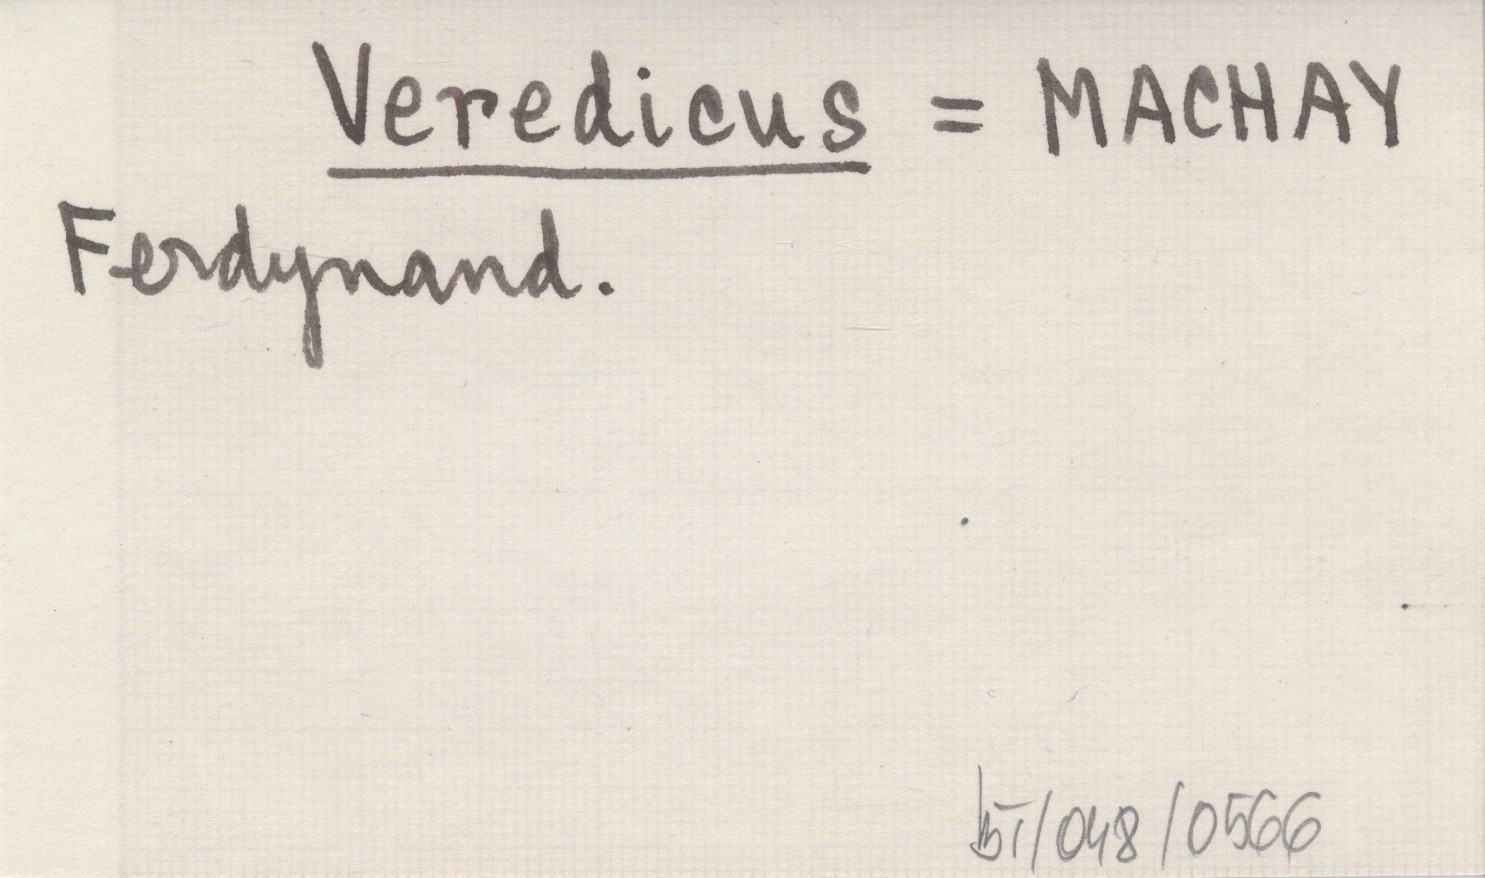 Veredicus = MACHAY
Ferdynand.
BT/048/0566